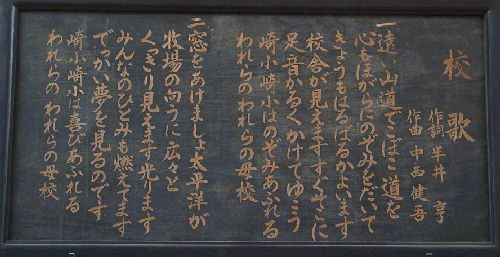 校歌
作詞 半井 亨
作曲 中西健吾
一 遠い山道でこぼこ道を
心もほがらにのぞみをだいて
きょうもはるばるかよいます
校舎が見えますすぐそこに
足音かるくかけてゆこう
崎小崎小はのぞみあふれる
われらのわれらの母校
二 窓をあけましょ太平洋が
牧場の向うに広々と
くっきり見えます光ります
みんなのひとみも燃えてます
でっかい夢を見るのです
崎小崎小は喜びあふれる
われらのわれらの母校